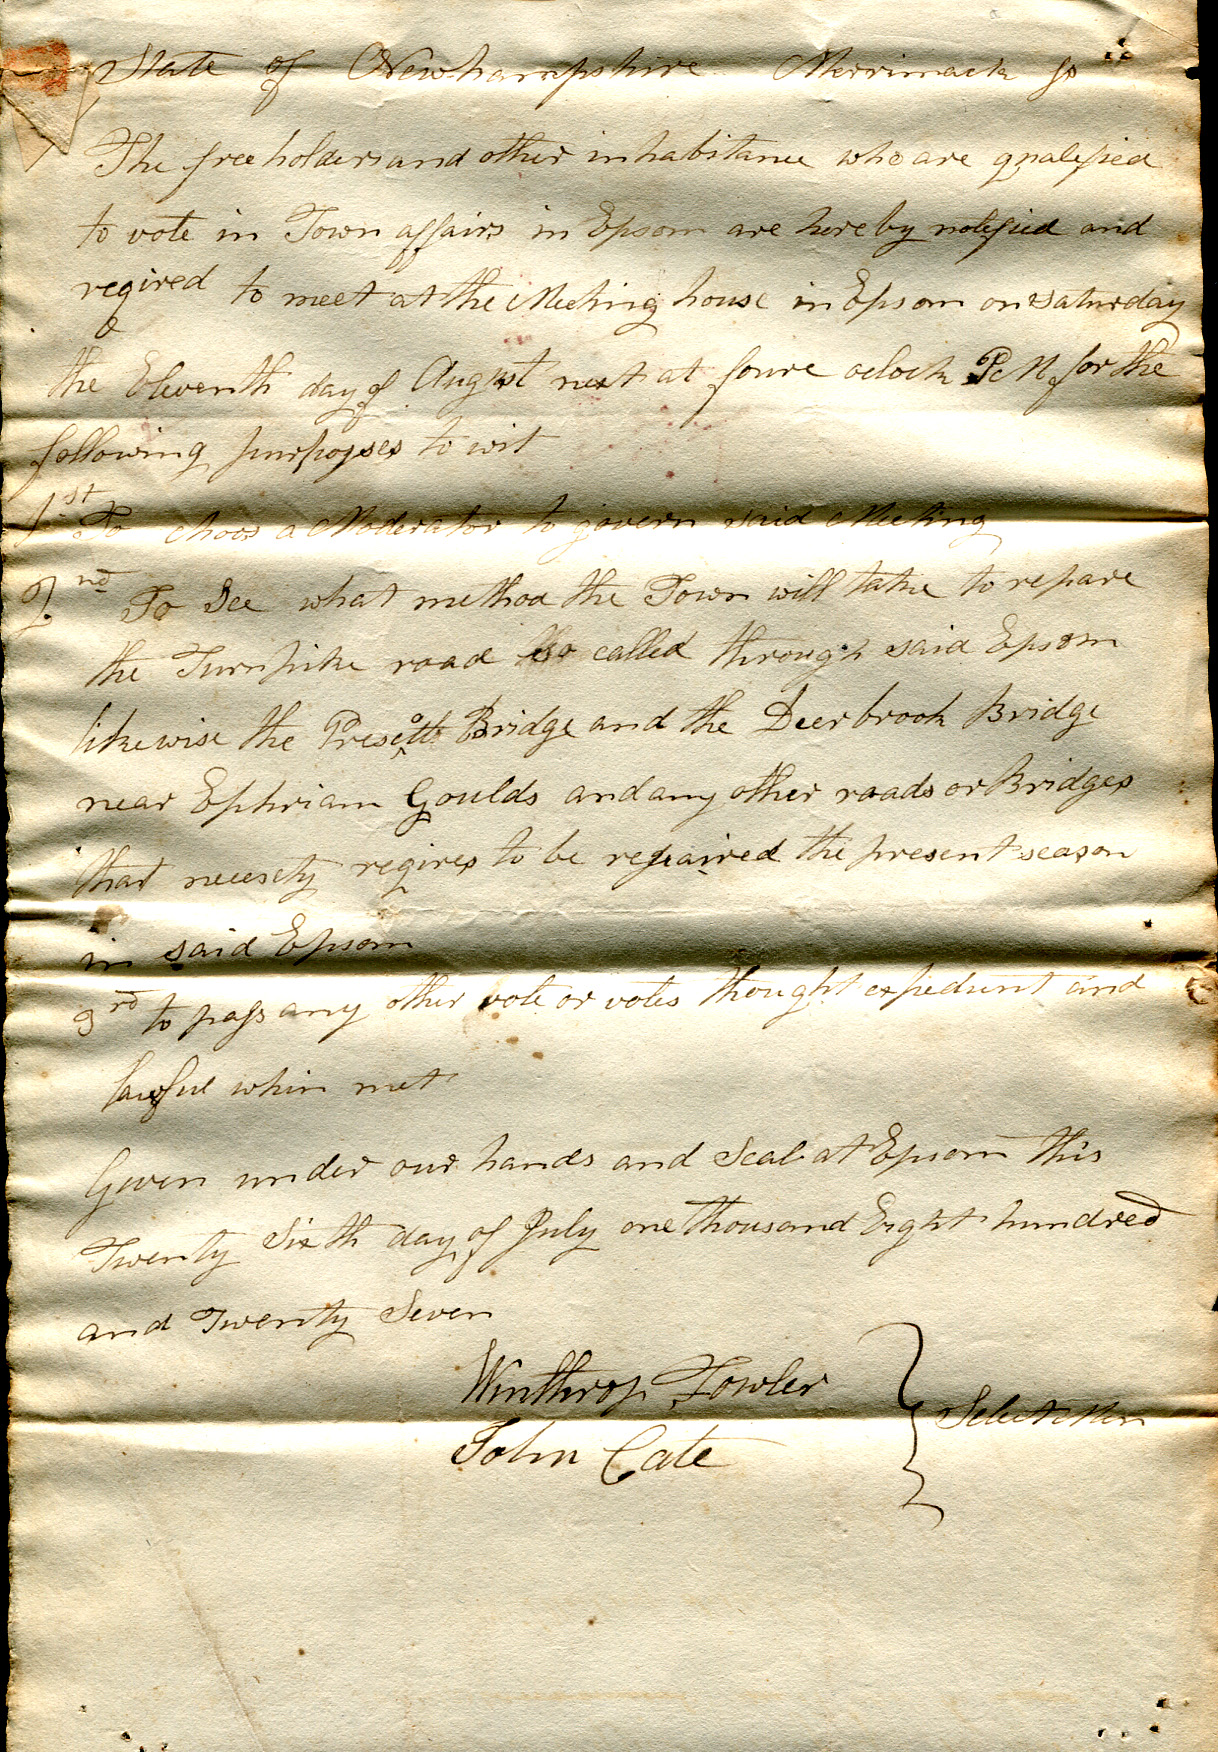 State of Newhampshire Merrimack ss
The free holders and other inhabitance who are qualefied
to vote in Town affairs in Epsom are hereby notefied and
reqired to meet at the Meeting house in Epsom on saturday
the Eleventh day of August next at foure oclock P M for the
following purposes to wit
1st To choos a Moderator to govern said Meeting
2nd To See what method the Town will take to repare
the Turnpike road so called through said Epsom
likewise the Presott Bridge and the Deerbrook Bridge
near Ephriam Goulds and any other roads or Bridges
that necesety reqires to be repaired the present season
in said Epsom
3rd to pass any other vote or votes thought expedient and
lawful when met
Given under our hands and Seal at Epsom this
Twenty Sixth day of July one thousand Eight hundred
and Twenty Seven
Winthrop Fowler
John Cate
Select Men